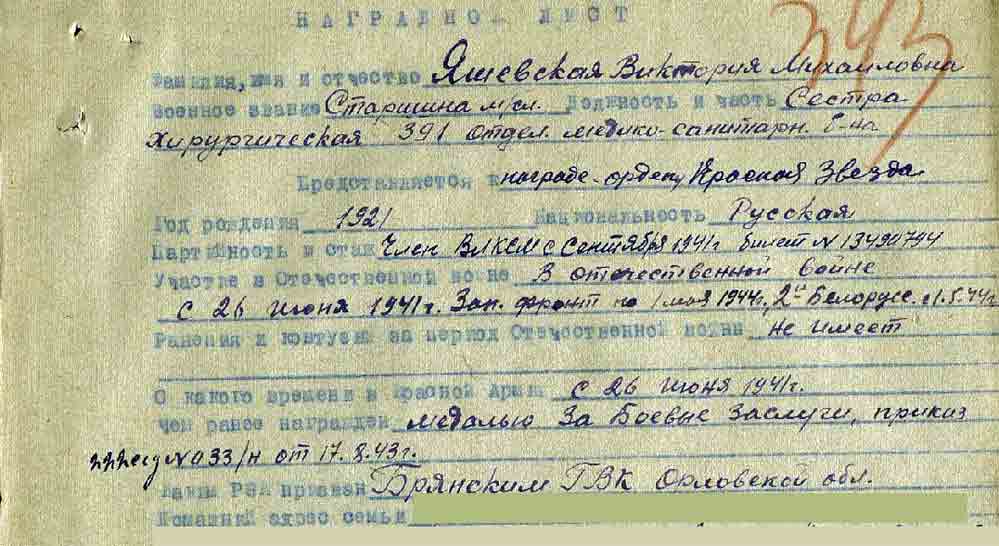 НАГРАДНО ЛИСТ
343
Фамилия, имя и отчество Яшевская Виктория Михайловна
Военное звание Старшина м/сл. Должность и часть Сестра
хирургическая 391 отдел. медико-санитарн. б-на
Представляется к награде-ордену Красная Звезда
Год рождения 1921 Национальность Русская
Партийность и стаж Член ВЛКСМ с сентября 1941г билет N 13490794
Участие в Отечественной войне В отечественной войне
с 26 июня 1941г. Зап. фронт по 1 мая 1944г., 2й Белорусс. с 1.5.44г
Ранения и контузии за период Отечественной войны не имеет
С какого времени в Красной Армии с 26 июня 1941г.
Чем ранее награжден медалью За Боевые Заслуги, приказ
222 сд N 033/н от 17.8.43г.
Каким РВК призван Брянским ГВК Орловской обл.
Домашний адрес семьи